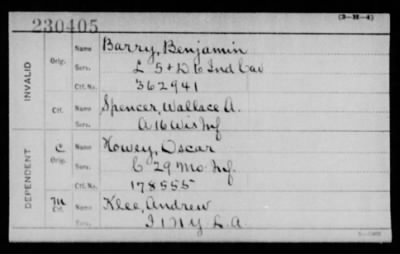 230405
(3-H-4)
INVALID
Orig. Name Barry, Benjamin
Serv. L 5 + D 6 Ind Cav
Ctf. No. 362941
Ctf. Name Spencer, Wallace A.
Serv. A 16 Wis Inf
DEPENDENT
C Orig. Name Howey, Oscar
Serv. C 29 Mo. Inf.
Ctf. No. 178555
M Ctf. Name Klee, Andrew
Serv. I 1 N Y L. A.